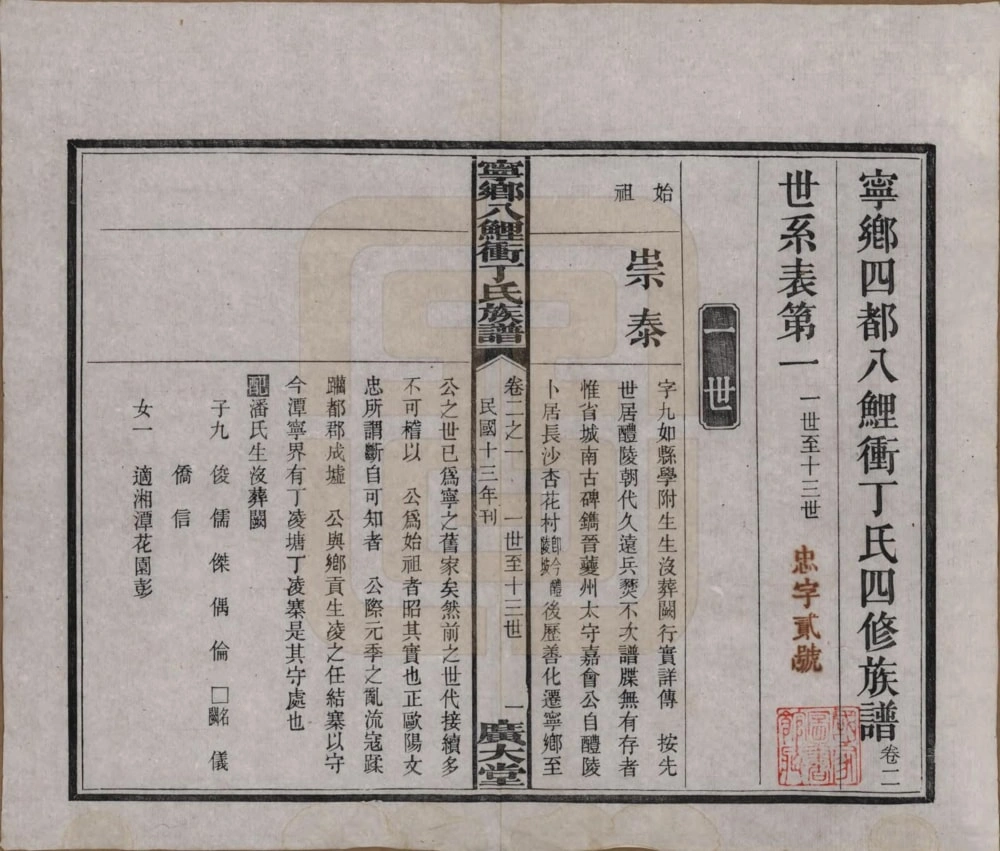 寧鄉四都八鯉衝丁氏四修族譜卷二
世系表第一 一世至十三世
忠字貳號
一世
始祖
崇泰
字九如縣學附生生沒葬闕行實詳傳 按先
世居醴陵朝代久遠兵燹不次譜牒無有存者
惟省城南古碑鐫晉夔州太守嘉會公自醴陵
卜居長沙杏花村即今醴陵坡後歷善化遷寧鄉至
寧鄉八鯉衝丁氏族譜
卷二之一 一世至十三世 一
民國十三年刊
廣大堂
公之世已爲寧之舊家矣然前之世代接續多
不可稽以 公爲始祖者昭其實也正歐陽文
忠所謂斷自可知者 公際元季之亂流寇蹂
躪都郡成墟 公與鄉貢生凌之任結寨以守
今潭寧界有丁凌塘丁凌寨是其守處也
配潘氏生沒葬闕
子九 俊 儒 傑 偶 倫 □名闕 儀
僑 信
女一 適湘潭花園彭